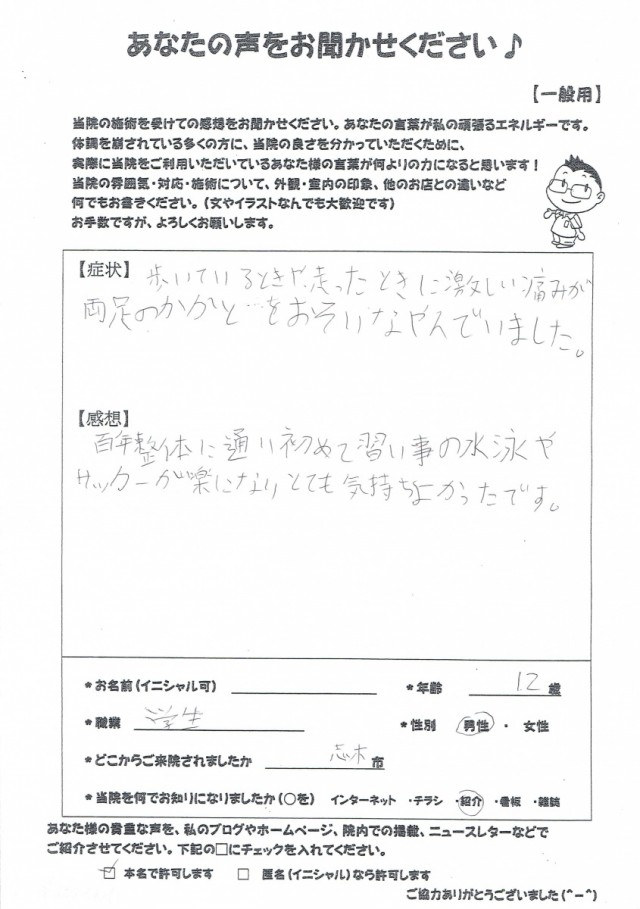 あなたの声をお聞かせください♪
【一般用】
当院の施術を受けての感想をお聞かせください。あなたの言葉が私の頑張るエネルギーです。
体調を崩されている多くの方に、当院の良さを分かっていただくために、
実際に当院をご利用いただいているあなた様の言葉が何よりの力になると思います!
当院の雰囲気・対応・施術について、外観・室内の印象、他のお店との違いなど
何でもお書きください。(文やイラストなんでも大歓迎です)
お手数ですが、よろしくお願いします。
【症状】 歩いているときや走ったときに激しい痛みが
両足のかかと…をおそいなやんでいました。
【感想】
百年整体に通い初めて習い事の水泳や
サッカーが楽になりとても気持ちよかったです。
*お名前(イニシャル可) *年齢 12 歳
*職業 学生 *性別 男性 ・ 女性
*どこからご来院されましたか 志木 市
*当院を何でお知りになりましたか(○を) インターネット ・チラシ ・紹介 ・看板 ・雑誌
あなた様の貴重な声を、私のブログやホームページ、院内での掲載、ニュースレターなどで
ご紹介させてください。下記の□にチェックを入れてください。
☑ 本名で許可します □ 匿名(イニシャル)なら許可します
ご協力ありがとうございました(^-^)